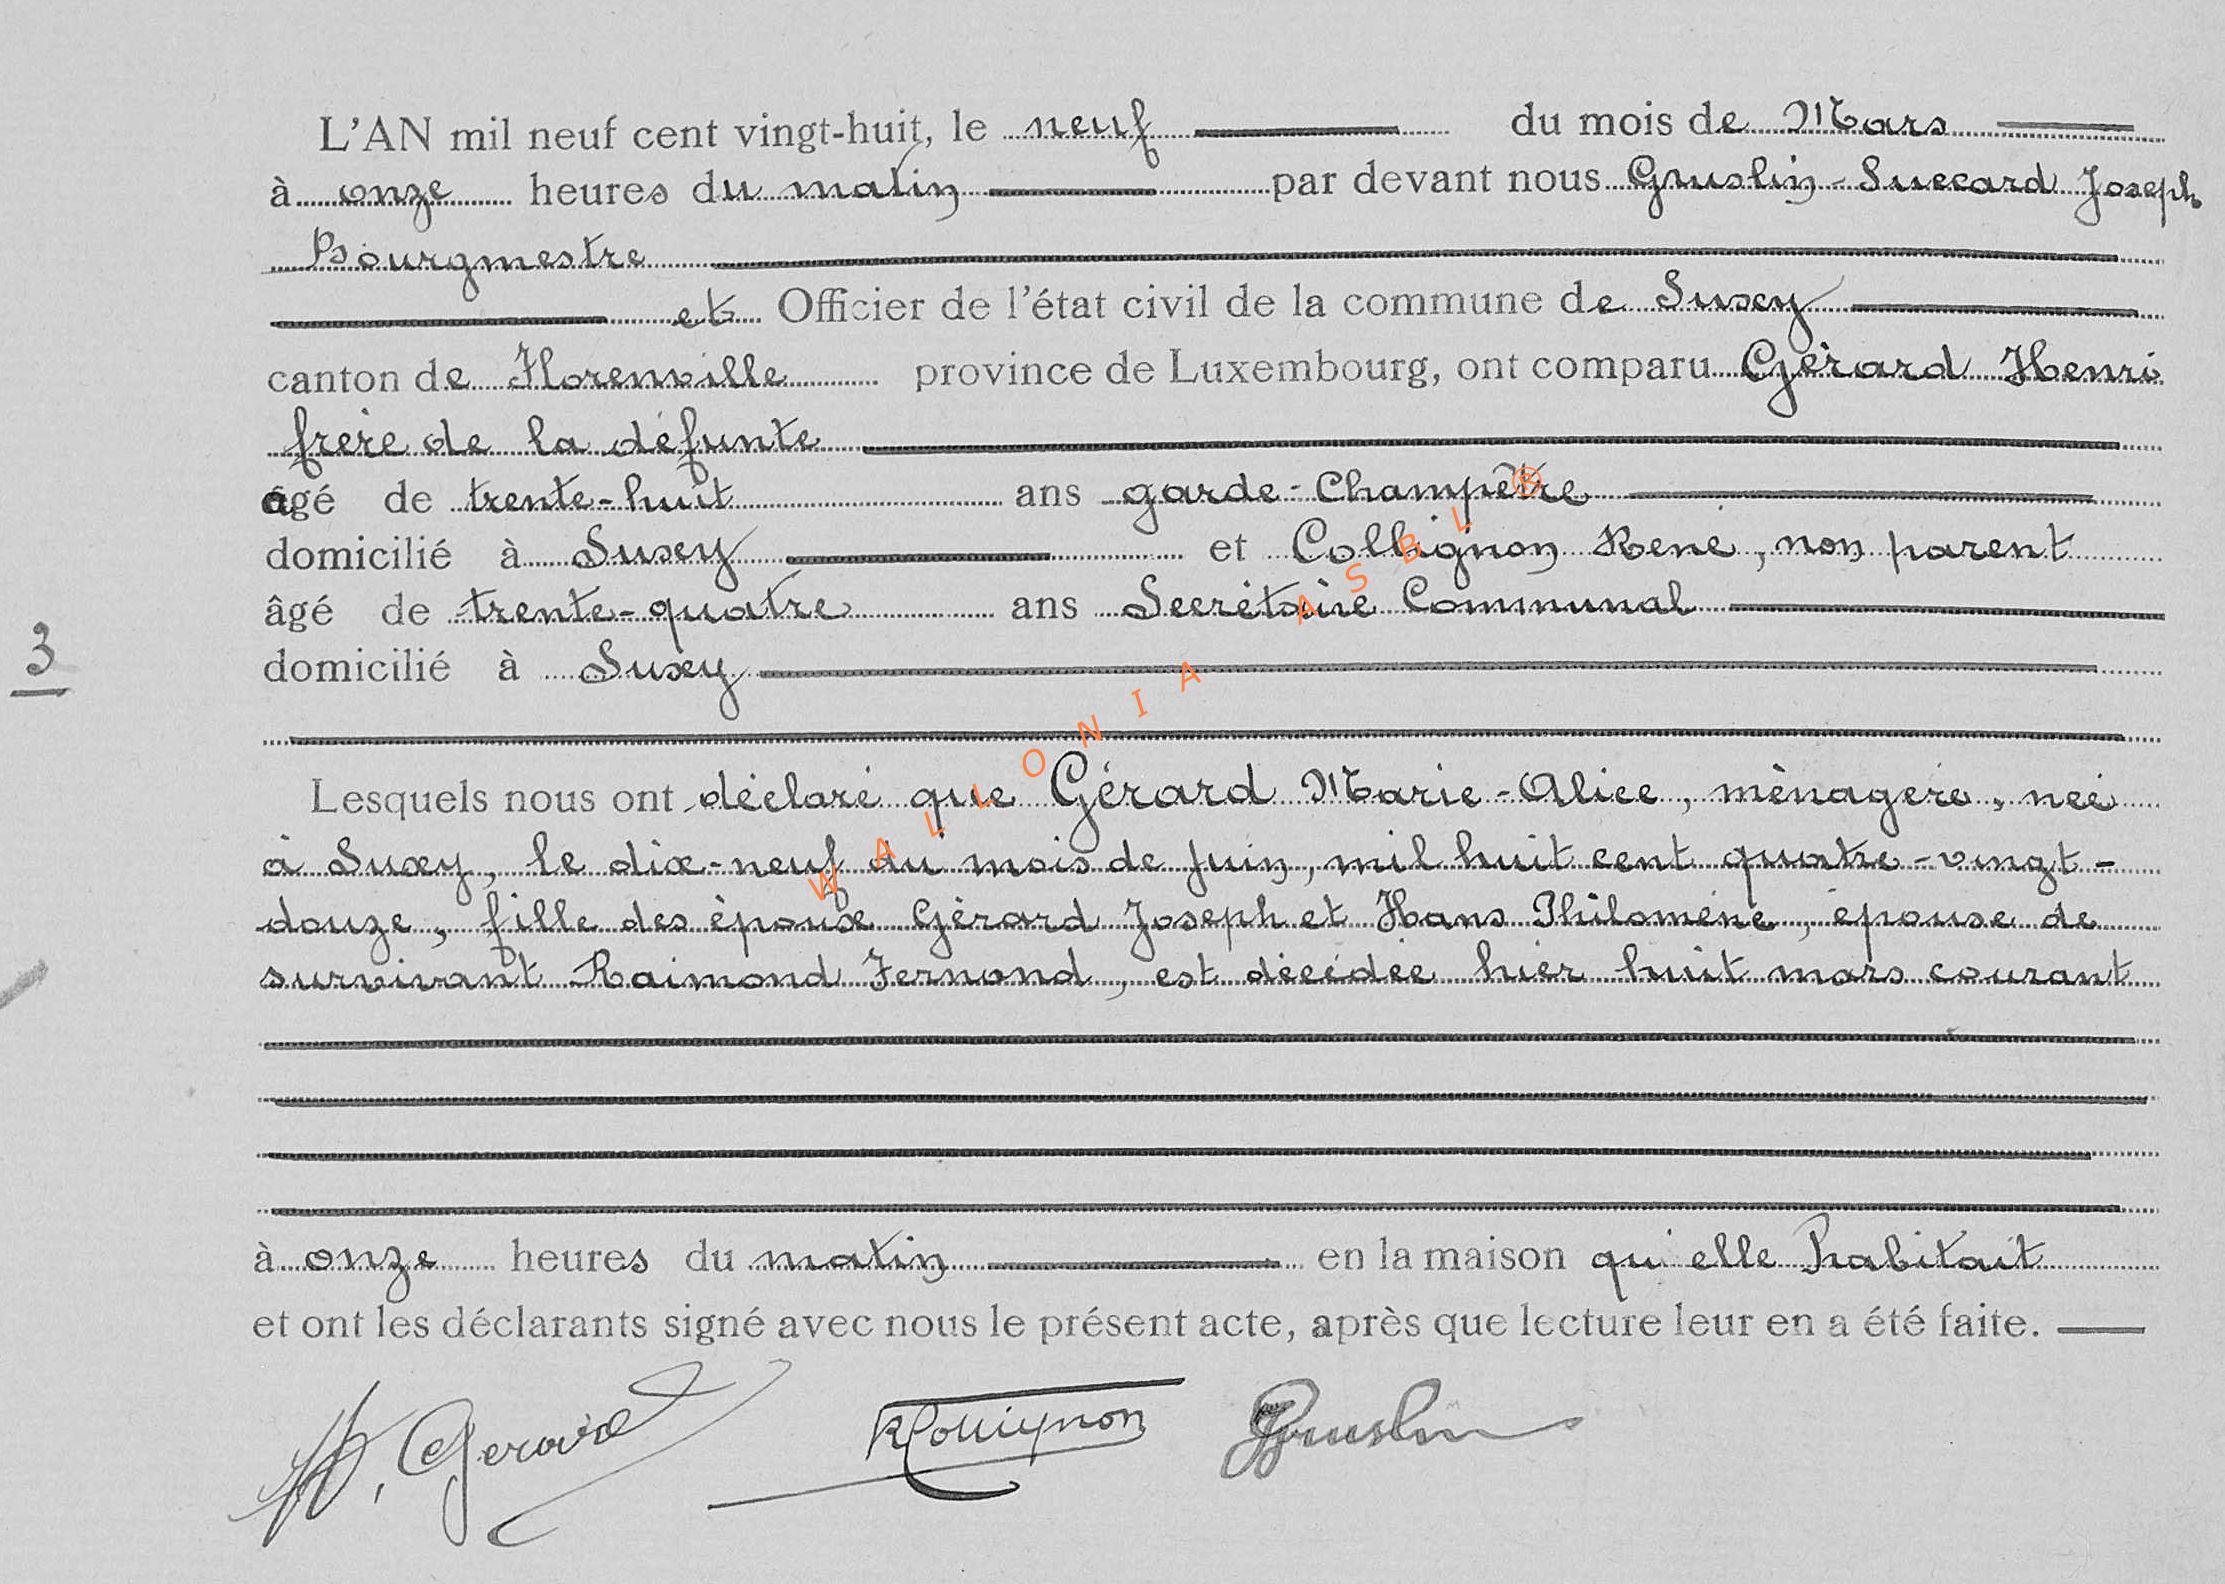 L'AN mil neuf cent vingt-huit, le neuf du mois de Mars
à onze heures du matin par devant nous Gruslin-Succard Joseph
Bourgmestre
et Officier de l'état civil de la commune de Suxy
canton de Florenville province de Luxembourg, ont comparu Gérard Henri
frère de la défunte
âgé de trente-huit ans garde-Champêtre
domicilié à Suxy et Collignon René, non parent
âgé de trente-quatre ans Secrétaire Communal
3
domicilié à Suxy
Lesquels nous ont déclaré que Gérard Marie-Alice, ménagère, née
à Suxy, le dix-neuf du mois de Juin, mil huit cent quatre-vingt-
douze, fille des époux Gérard Joseph et Hans Philomène, épouse de
survivant Raimond Fernand, est décédée hier huit mars courant
à onze heures du matin en la maison qu'elle habitait
et ont les déclarants signé avec nous le présent acte, après que lecture leur en a été faite.
H. Gerard RCollignon JGruslin
WALLONIA ASBL ®